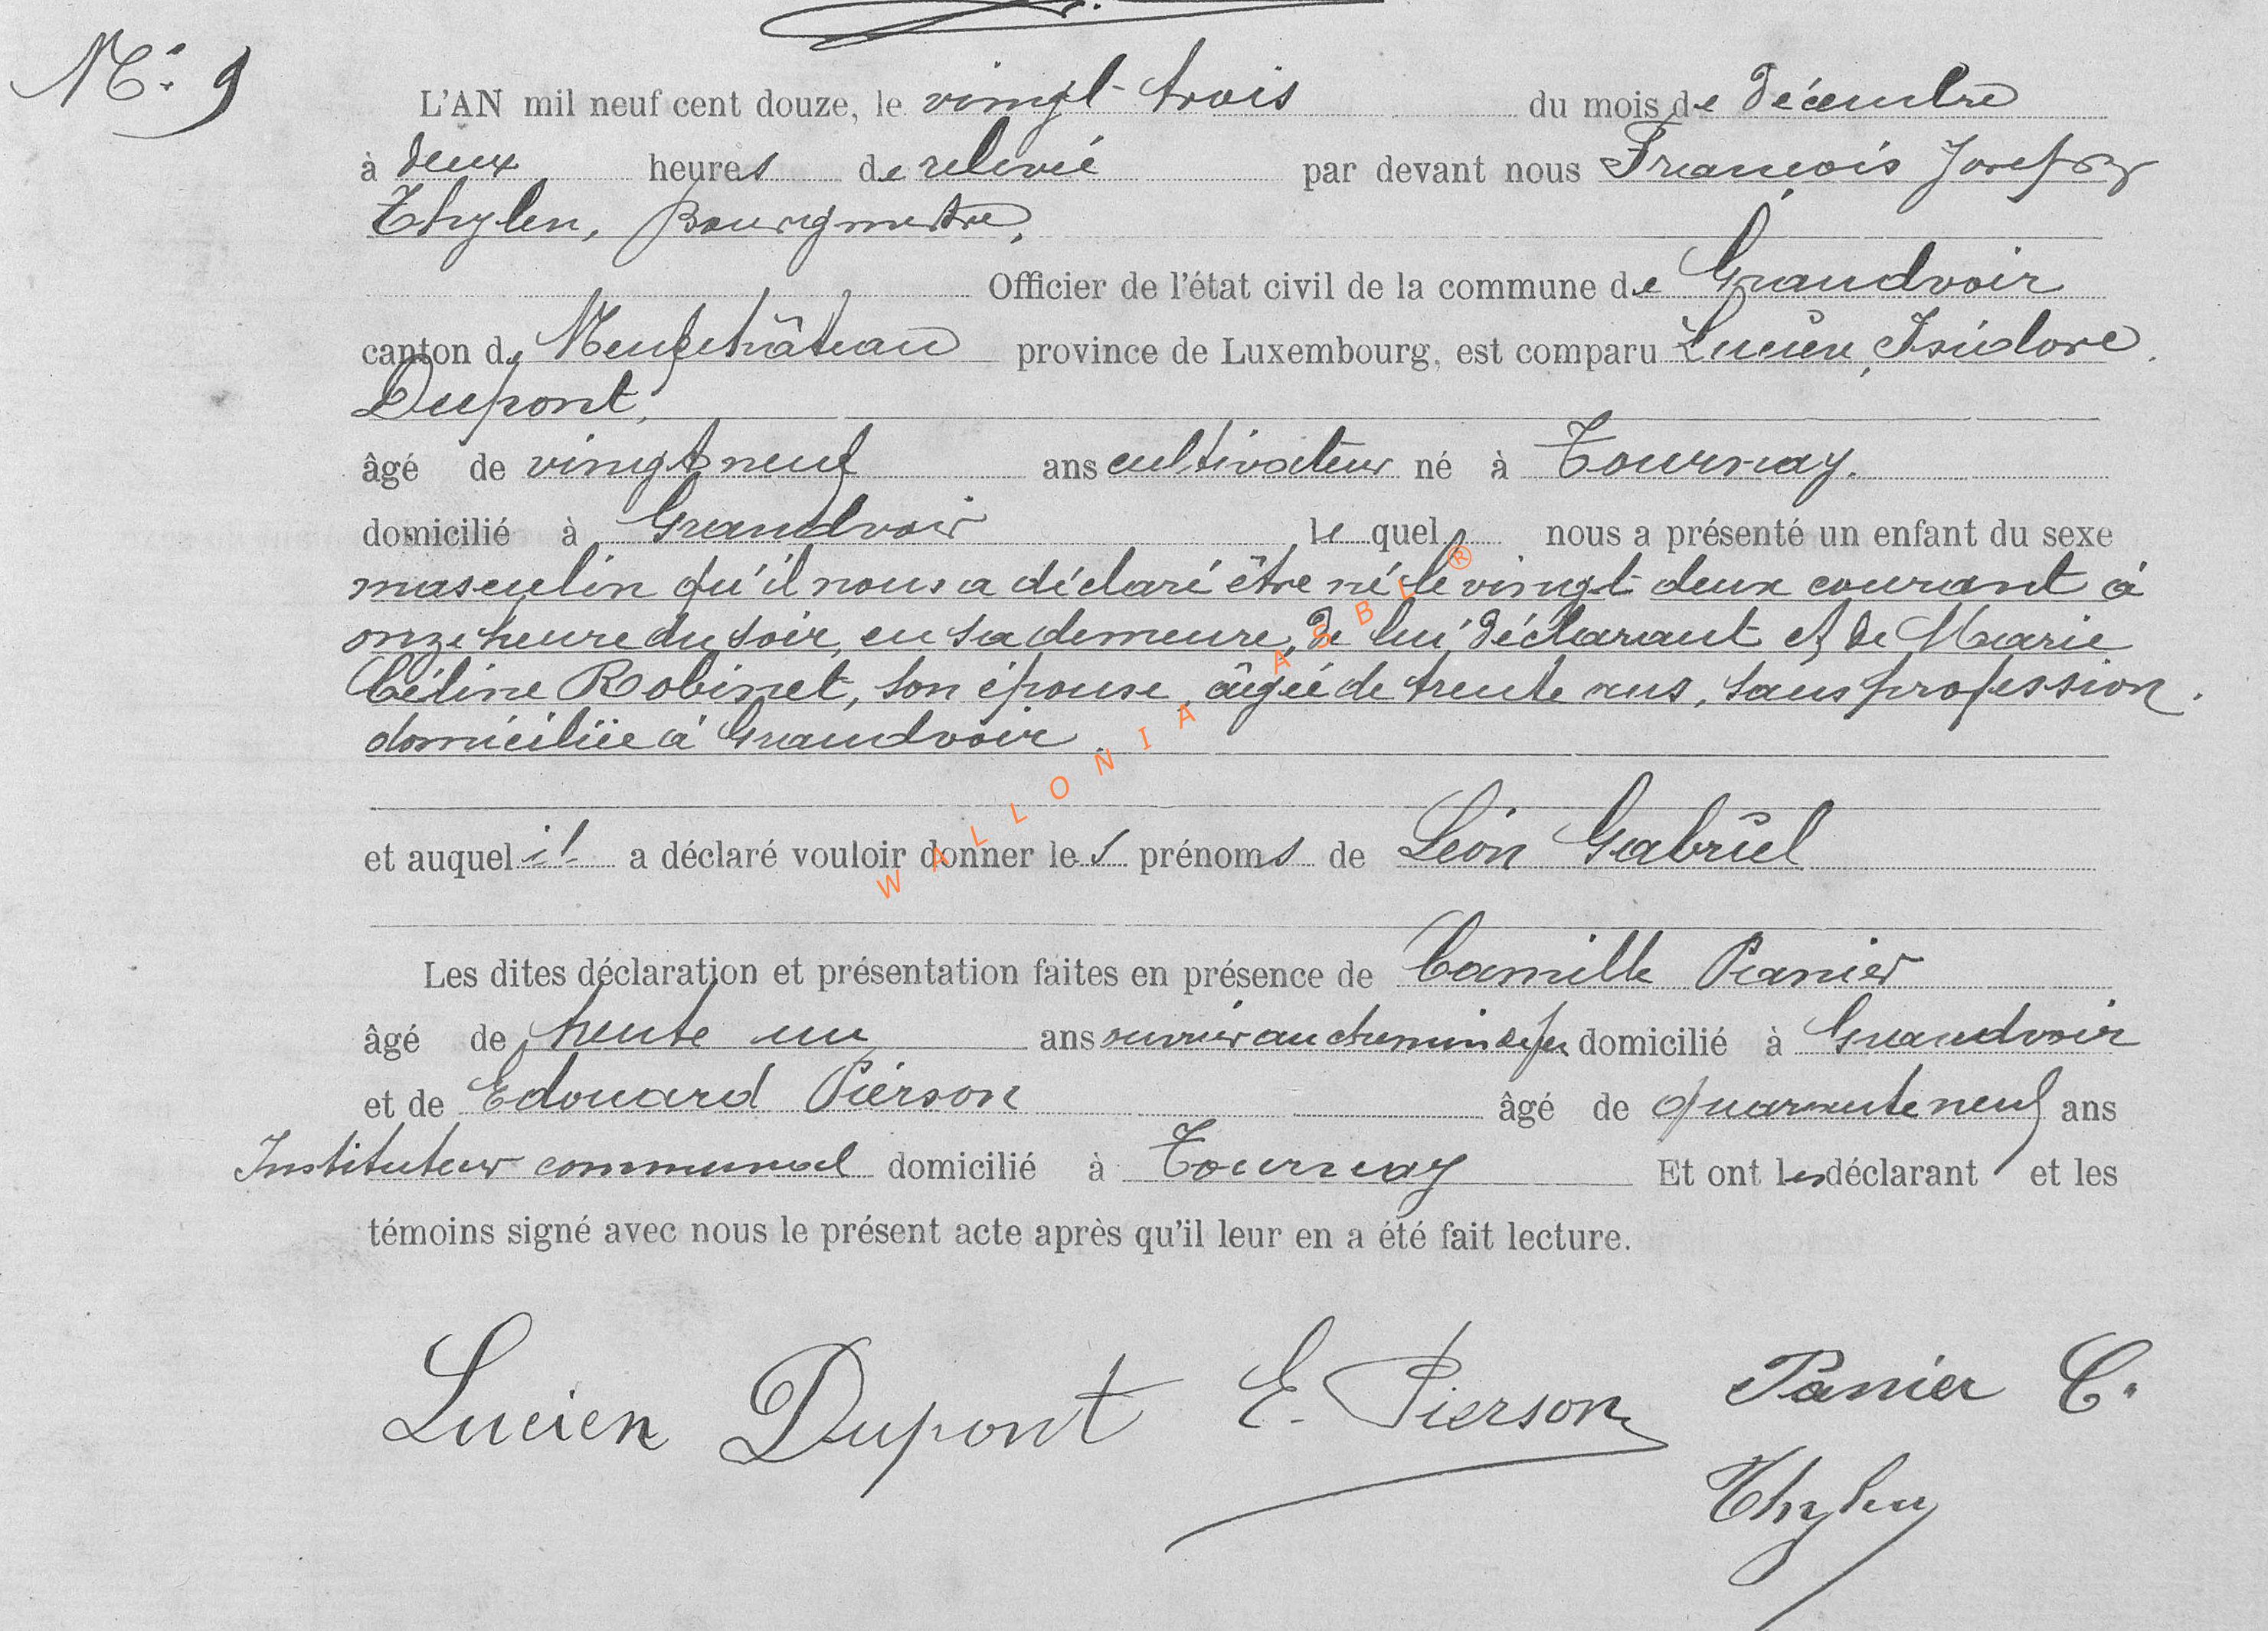 N° 9
L'AN mil neuf cent douze, le vingt-trois du mois de décembre
à deux heures de relevé par devant nous François Joseph
Thylen, Bourgmestre,
Officier de l'état civil de la commune de Grandvoir
canton de Neufchâteau province de Luxembourg, est comparu Lucien, Isidore
Dupont,
âgé de vingt neuf ans cultivateur né à Tournay.
domicilié à Grandvoir le quel nous a présenté un enfant du sexe
masculin qu'il nous a déclaré être né le vingt-deux courant à
onze heure du soir, en sa demeure, de lui déclarant et de Marie
Céline Robinet, son épouse, âgée de trente ans, sans profession.
domiciliée à Grandvoir.
et auquel il a déclaré vouloir donner les prénoms de Léon Gabriel
Les dites déclaration et présentation faites en présence de Camille Panier
âgé de trente un ans ouvrier au chemin de fer domicilié à Grandvoir
et de Edouard Pierson âgé de quarante neuf ans
Instituteur communal domicilié à Tournay Et ont les déclarant et les
témoins signé avec nous le présent acte après qu'il leur en a été fait lecture.
Lucien Dupont E. Pierson Panier C.
Thylen
WALLONIA ASBL ®